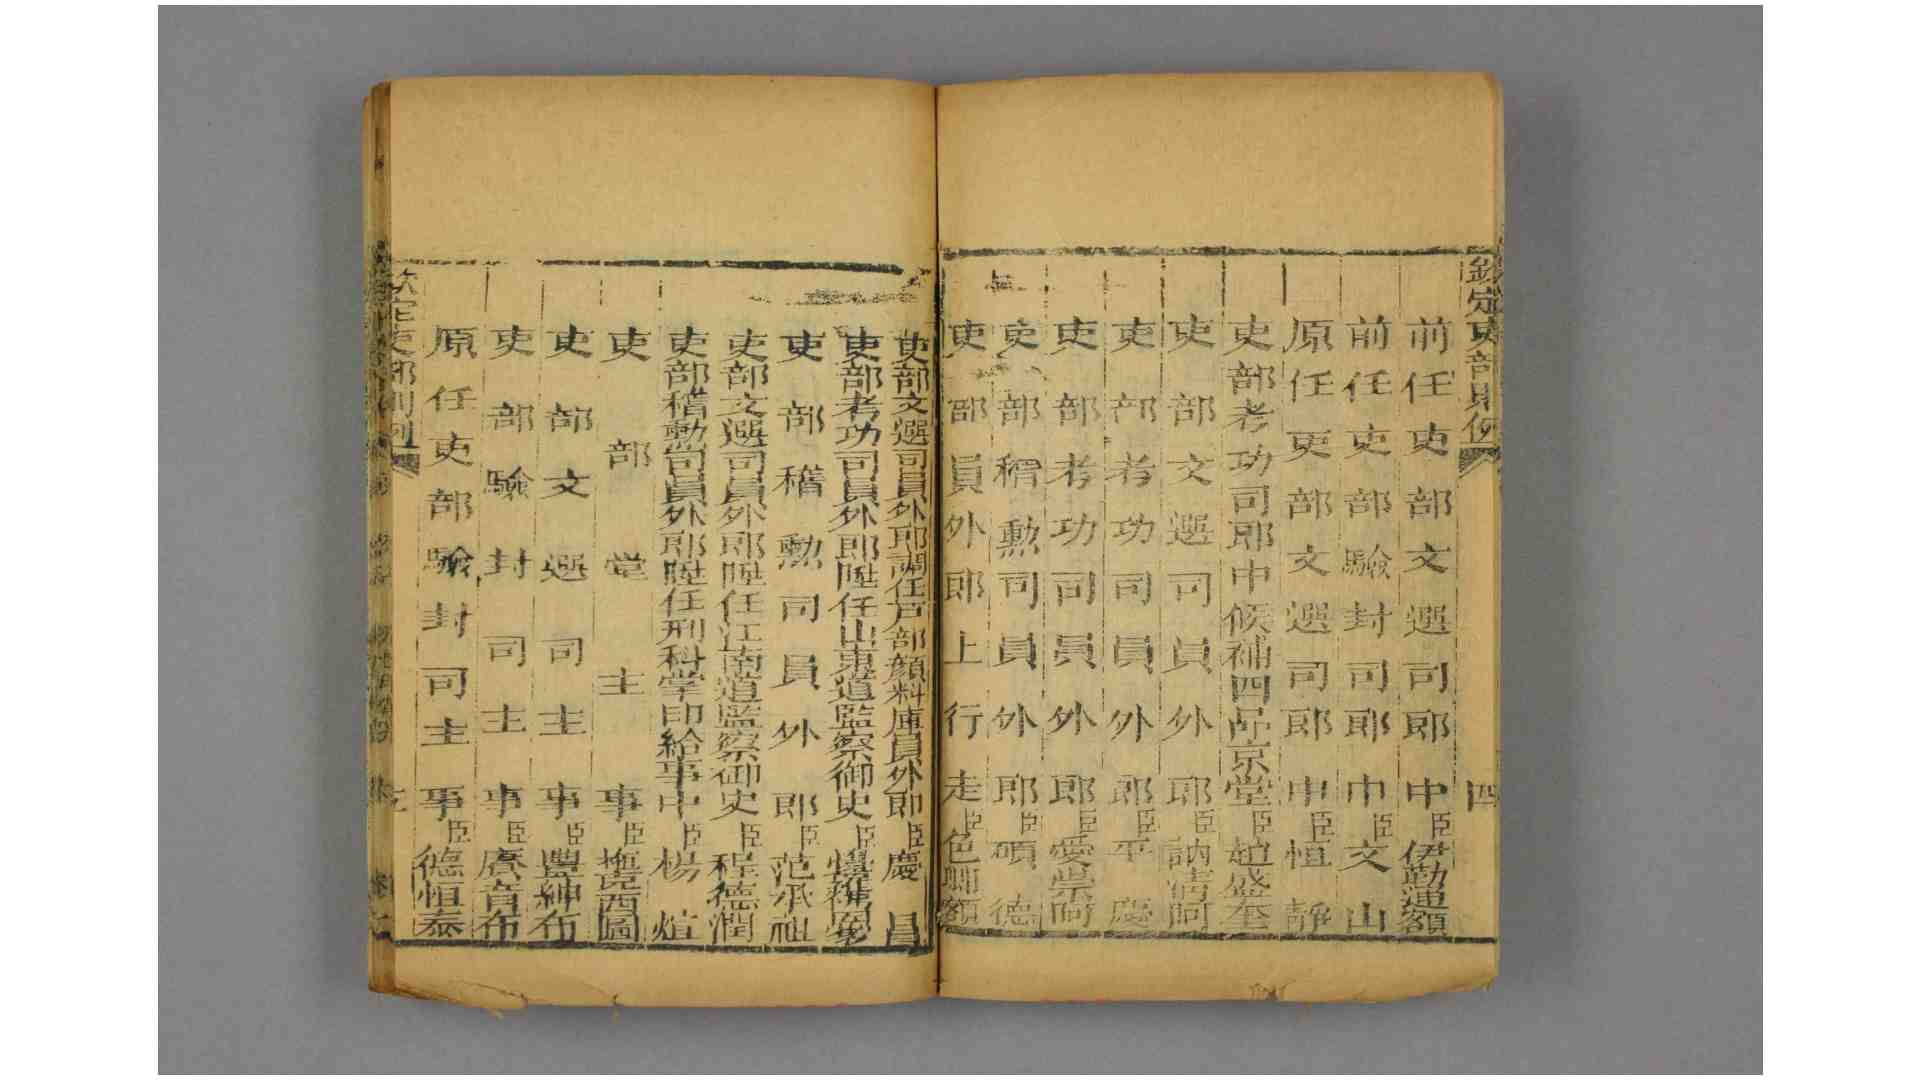 欽定吏部則例
四
前任吏部文選司郎中臣伊勒運額
前任吏部驗封司郎中臣文山
原任吏部文選司郎中臣恒靜
吏部考功司郎中候補四品京堂臣趙盛奎
吏部文選司員外郎臣訥清阿
吏部考功司員外郎臣平慶
吏部考功司員外郎臣愛崇阿
吏部稽勳司員外郎臣碩德
吏部員外郎上行走臣色卿額
吏部文選司員外郎調任戶部顏料庫員外郎臣慶昌
吏部考功司員外郎陞任山東道監察御史臣
吏部稽勳司員外郎臣范承祖
吏部文選司員外郎陞任江南道監察御史臣程德潤
吏部稽勳司員外郎陞任刑科掌印給事中臣楊煊
吏部堂主事臣
吏部文選司主事臣豐紳布
吏部驗封司主事臣賡音布
原任吏部驗封司主事臣德恒泰
欽定吏部則例